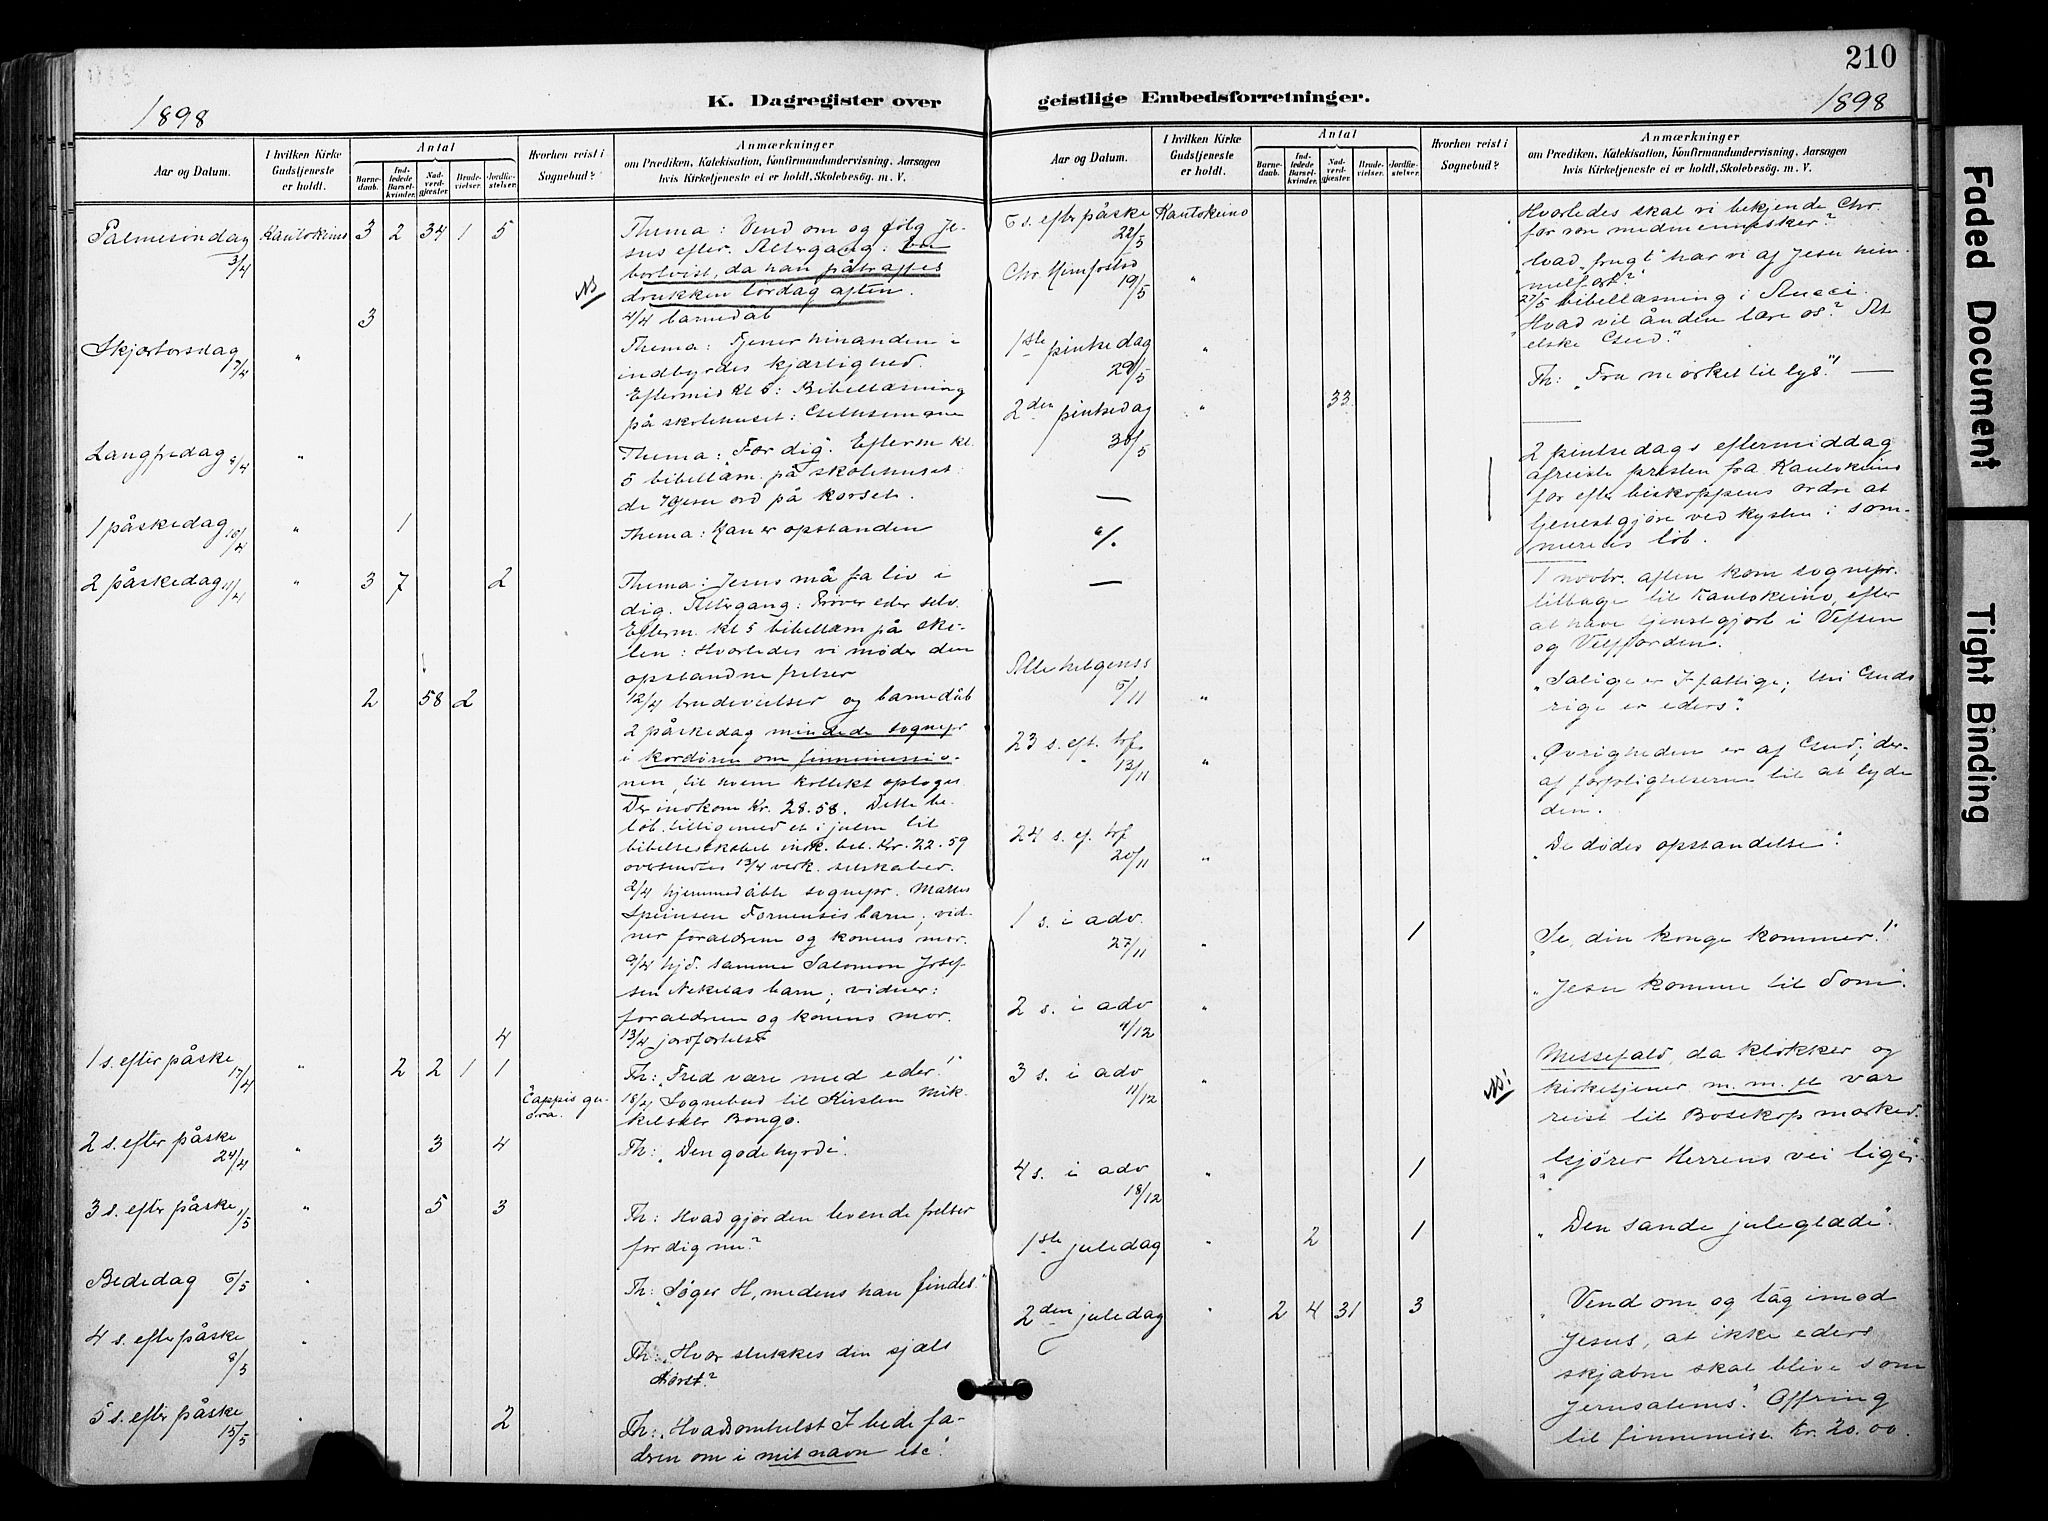 210
1898
K. Dagregister over
geistlige Embedsforretninger.
1898
Aar og Datum.
I hvilken Kirke
Gudstjeneste
er holdt.
Antal
Barne-
daab.
Ind-
ledede
Barsel-
kvinder.
Nad-
verd-
gjester
Brude-
vielser.
Jordfæ-
stelser.
Hvorhen reist i
Sognebud?
Anmærkninger
om Prædiken, Katekisation, Konfirmandundervisning, Aarsagen
hvis Kirketjeneste ei er holdt, Skolebesøg. m. V.
Palmesöndag 3/4 Kautokeino 3 2 34 1 5
Thema: Vend om og fölg Je-
sus efter. Altergang:
bortvist, da han påtraffes
NB drukken lördag aften.
3 4/4 barnedåb
Skjærtorsdag 7/4 " Thema: Tjener hinanden i
indbyrdes kjærlighed.
Eftermid kl 5: Bibellæsning
på skolehuset: Gethsemane
Langfredag 8/4 " Thema: For dig. Efterm kl.
5 bibellæsn. på skolehuset:
de 7 Jesu ord på korset.
1 påskedag 10/4 " 1 Thema: Han er opstanden
2 påskedag 11/4 " 3 7 2 Thema: Jesus må få liv i
dig. Altergang: Pröver eder selv.
Efterm. kl 5 bibellæsn på sko-
len: Hvorledes vi møder den
opstandne frelser
2 58 2 12/4 brudevielser og barnedåb
2 påskedag mindede sognepr
i kordören om finnemissio-
nen, til hvem kollekt optoges
Der indkom Kr. 28.58. Dette be-
löb tilligemed et i julen til
bibelselskabet indk. bel. Kr. 22.59
oversendtes 13/4 verk. selskaber.
2/4 hjemmedöbte sognepr. Mattis
barn; vid-
ner forældrene og konens mor.
9/4 hjd. samme Salomon Josef-
sen Nekelas barn; vidner:
forældrene og konens mor.
4 13/4 jordfæstelse
1 s. efter påske 17/4 " 2 2 1 1 Th: "Fred være med eder!"
Cappisgu-
18/4 Sognebud til Kirsten Mik-
kelsdtr Bongo.
2 s. efter påske 24/4 " 3 4 Th: "Den gode hyrde".
3 s. efter påske 1/5 " 5 3 Th: Hvad gjör den levende frelser
for dig nu?
Bededag 6/5 " Th: "Søger H, medens han findes."
4 s. efter påske 8/5 " Th: "Hvor slukkes din sjæls
törst?
5 s. efter påske 15/5 " 2 Th: "Hvadsomhelst I bede fa-
deren om i mit navn etc".
Aar og Datum.
I hvilken Kirke
Gudstjeneste
er holdt.
Antal
Barne-
daab.
Ind-
ledede
Barsel-
kvinder.
Nad-
verd-
gjester
Brude-
vielser.
Jordfæ-
stelser.
Hvorhen reist i
Sognebud?
Anmærkninger
om Prædiken, Katekisation, Konfirmandundervisning, Aarsagen
hvis Kirketjeneste ei er holdt, Skolebesøg. m. V.
6 s. efter påske 22/5 Kautokeino "Hvorledes skal vi bekjende Chr.
for vore medmennesker?
Chr. Himfestd 19/5 " "Hvad "frugt" har vi af Jesu him-
melfart?"
27/5 bibellæsning i
1ste pintsedag 29/5 " "Hvad vil ånden lære os? At
elske Gud."
2den pintsedag 30/5 " 33 Th: "Fra mörket til lys".
— 2 pintsedags eftermiddag
afreiste presten fra Kautokeino
for efter biskoppens ordre at
tjenestgjöre ved kysten i som-
merens löb.
— 1 novbr. aften kom sognepr.
tilbage til Kautokeino, efter
at have tjenstgjort i Vefsen
og Velfjorden.
Alle helgenss 6/11 " "Salige er I fattige; thi Guds
rige er eders".
23 s. eft. trf. 13/11 " "Øvrigheden er af Gud; der-
af forpligtelserne til at lyde
den.
24 s. ef. trf 20/11 " "De dödes opstandelse".
1 s. i adv. 27/11 " 1 "Se, din konge kommer!"
2 s. i adv 4/12 " "Jesu komme til dom".
3 s. i adv 11/12 " NB! Messefald, da klokker og
kirketjener m. m. fl var
reist til Bosekop marked.
4 s. i adv 18/12 " 1 "Gjører Herrens vei lige".
1ste juledag " 2 1 "Den sande juleglæde".
2den juledag " 2 4 31 3 "Vend om og tag imod
Jesus, at ikke eders
skjæbne skal blive som
Jerusalems". Offring
til finnemiss. Kr. 20.00.
Faded Document
Tight Binding